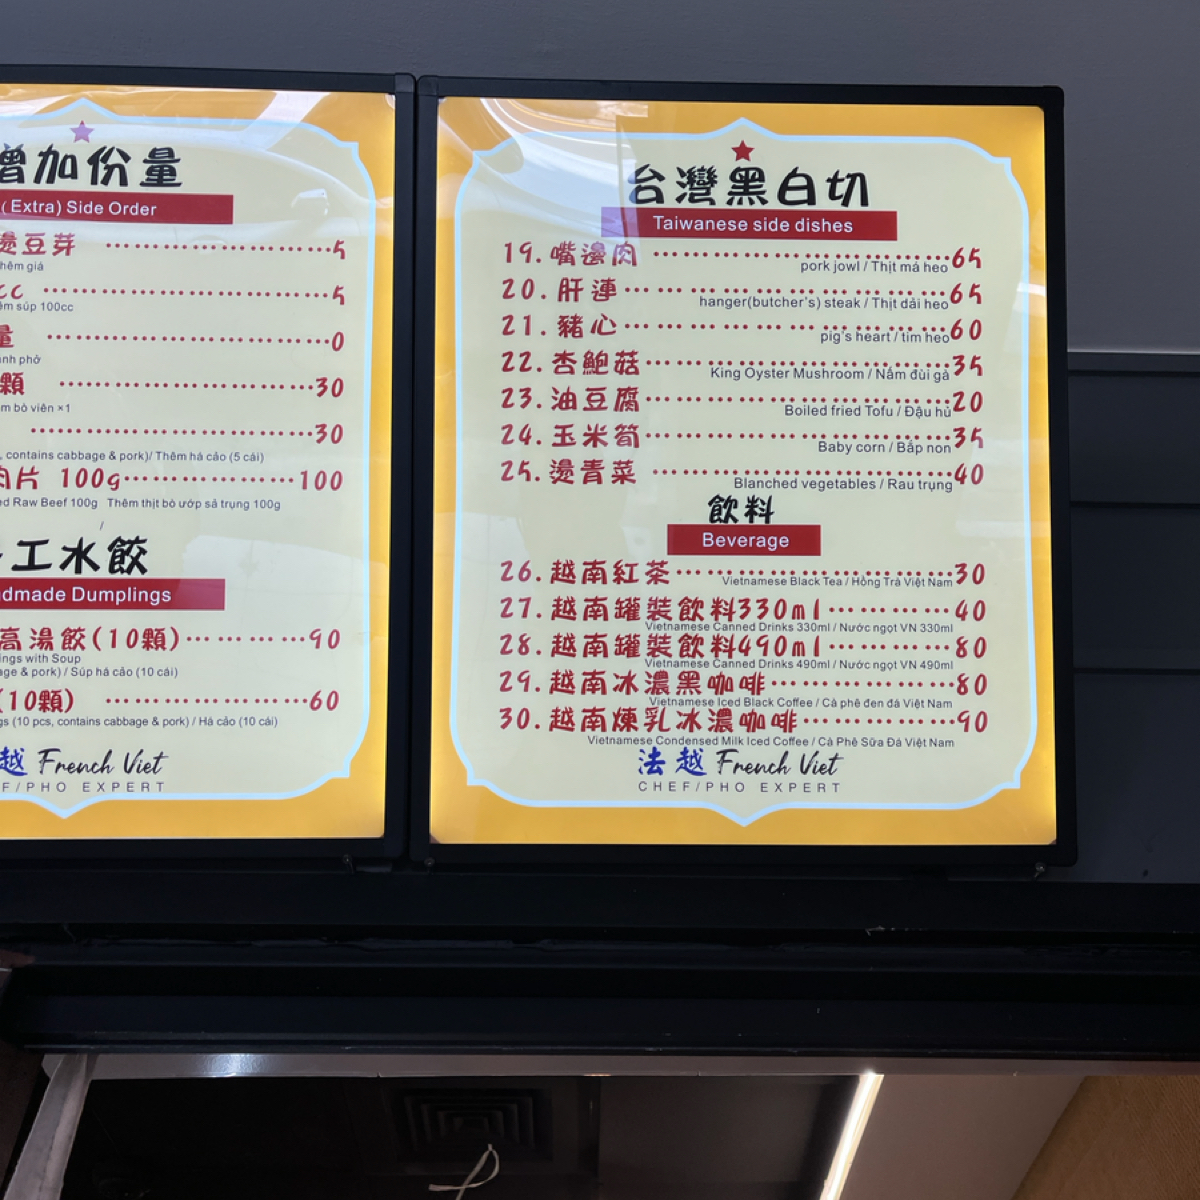 增加份量
(Extra) Side Order
燙豆芽 ………………………… 5
hêm giá
cc ………………………… 5
êm súp 100cc
量 ………………………… 0
ánh phở
顆 ………………………… 30
m bò viên ×1
………………………… 30
, contains cabbage & pork)/ Thêm há cảo (5 cái)
肉片 100g ………………… 100
ed Raw Beef 100g Thêm thịt bò ướp sả trụng 100g
/
工水餃
dmade Dumplings
高湯餃(10顆) ………… 90
ings with Soup
age & pork) / Súp há cảo (10 cái)
(10顆) ………………… 60
gs (10 pcs, contains cabbage & pork) / Há cảo (10 cái)
越 French Viet
F/PHO EXPERT
台灣黑白切
Taiwanese side dishes
19. 嘴邊肉 ………………………… 65
pork jowl / Thịt má heo
20. 肝連 ………………………… 65
hanger(butcher's) steak / Thịt dải heo
21. 豬心 ………………………… 60
pig's heart / tim heo
22. 杏鮑菇 ………………………… 35
King Oyster Mushroom / Nấm đùi gà
23. 油豆腐 ………………………… 20
Boiled fried Tofu / Đậu hủ
24. 玉米筍 ………………………… 35
Baby corn / Bắp non
25. 燙青菜 ………………………… 40
Blanched vegetables / Rau trụng
飲料
Beverage
26. 越南紅茶 ………………………… 30
Vietnamese Black Tea / Hồng Trà Việt Nam
27. 越南罐裝飲料330ml ………… 40
Vietnamese Canned Drinks 330ml / Nước ngọt VN 330ml
28. 越南罐裝飲料490ml ………… 80
Vietnamese Canned Drinks 490ml / Nước ngọt VN 490ml
29. 越南冰濃黑咖啡 ………………… 80
Vietnamese Iced Black Coffee / Cà phê đen đá Việt Nam
30. 越南煉乳冰濃咖啡 ……………… 90
Vietnamese Condensed Milk Iced Coffee / Cà Phê Sữa Đá Việt Nam
法越 French Viet
CHEF/PHO EXPERT